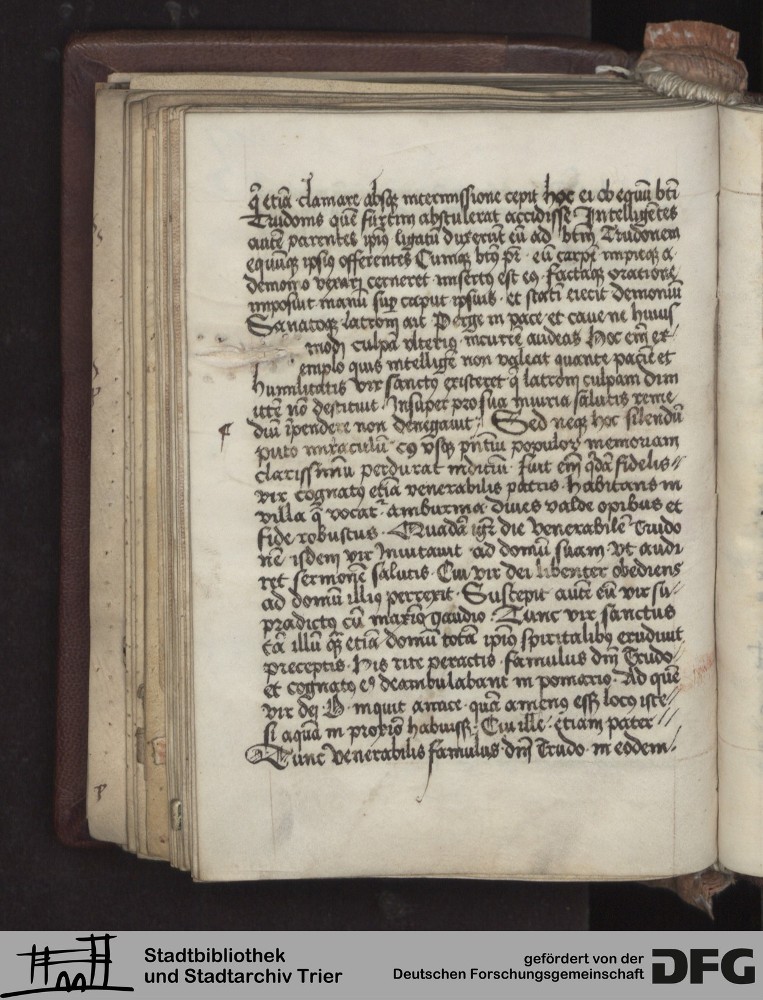 q̄ etiā clamare absq̨ intermissione cepit hoc ei ob equū bti
Trudonis quē furtim abstulerat accidisse Intelligētes
autē parentes ipiꝰ ligatū duxerūt eū ad btm̄ Trudonem
equūq̨ ipsiꝰ offerentes Cumq̨ btꝰ pr̄ eū impieq̨ a
demonio cerneret misertꝰ est eꝰ factaq̨ oratione
imposuit manū suꝑ caput ipsius et statī eiecit demoniū
Sanatoq̨ latroni ait Perge in pace et caue ne huius
modi culpā vlteriꝰ incurre audeas Hoc em̄ ex
emplo quis intelligē non valeat quante paciē et
humilitatis vir sanctꝰ existeret q̄ latroni culpam dim
itte nō destitit Insuper pro sua iniuria salutis reme
diū īpendere non denegauit Sed neq̨ hoc silendū
puto miraculū cꝰ vsq̨ ad p̄ntiū populoꝝ memoriam
clarissimū perdurat indiciū fuit em̄ q̄dā fidelis
vir cognatꝰ etiā venerabilis patris habitans in
villa q̄ vocat amburina diues valde opibus et
fide robustus Quadā igr̄ die venerabilē Trudo
nē isdem vir Inuitauit ad domū suam vt audi
ret sermonē salutis Cui vir dei libenter obediens
ad domū illiꝰ perrexit Suscepit autē eū vir su
pradictꝰ cū maxīo gaudio Tunc vir sanctus
tā illū q̄ etiā domū totā ipiꝰ spiritalibꝰ erudiuit
preceptis His rite peractis famulus dn̄i Trudo
et cognatꝰ eꝰ deambulabant in pomario Ad quē
vir dei O inquit amice quā amenꝰ esset locꝰ iste
si aquā in proxīo habuisset Cui ille etiam pater
Tunc venerabilis famulus dn̄i Trudo in eodem
Stadtbibliothek
und Stadtarchiv Trier
gefördert von der
Deutschen Forschungsgemeinschaft
DFG